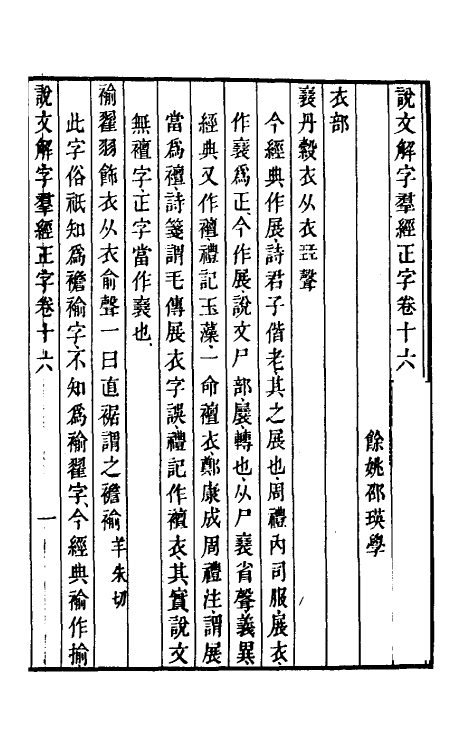 說文解字羣經正字卷十六
餘姚邵瑛學
衣部
襄丹縠衣从衣㠭聲
今經典作展詩君子偕老其之展也周禮內司服展衣
作襄爲正今作展說文尸部展轉也从尸襄省聲義異
經典又作襢禮記玉藻一命襢衣鄭康成周禮注謂展
當爲襢詩箋謂毛傳展衣字誤禮記作襢衣其實說文
無襢字正字當作襄也
褕翟羽飾衣从衣俞聲一曰直裾謂之襜褕羊朱切
此字俗祇知爲襜褕字不知爲褕翟字今經典褕作揄
說文解字羣經正字卷十六 一